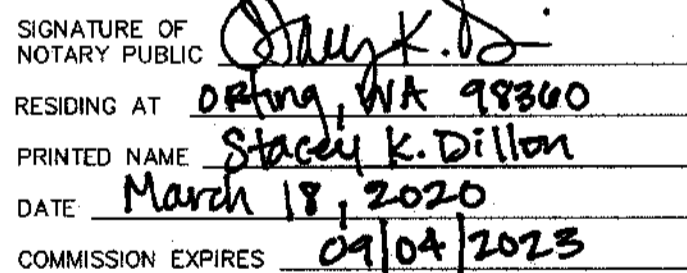 SIGNATURE OF
NOTARY PUBLIC Stacey K. Di
RESIDING AT Orting, WA 98360
PRINTED NAME Stacey K. Dillon
DATE March 18, 2020
COMMISSION EXPIRES 09/04/2023